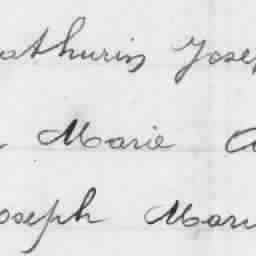 athurin Josep
Marie A
oseph Marie